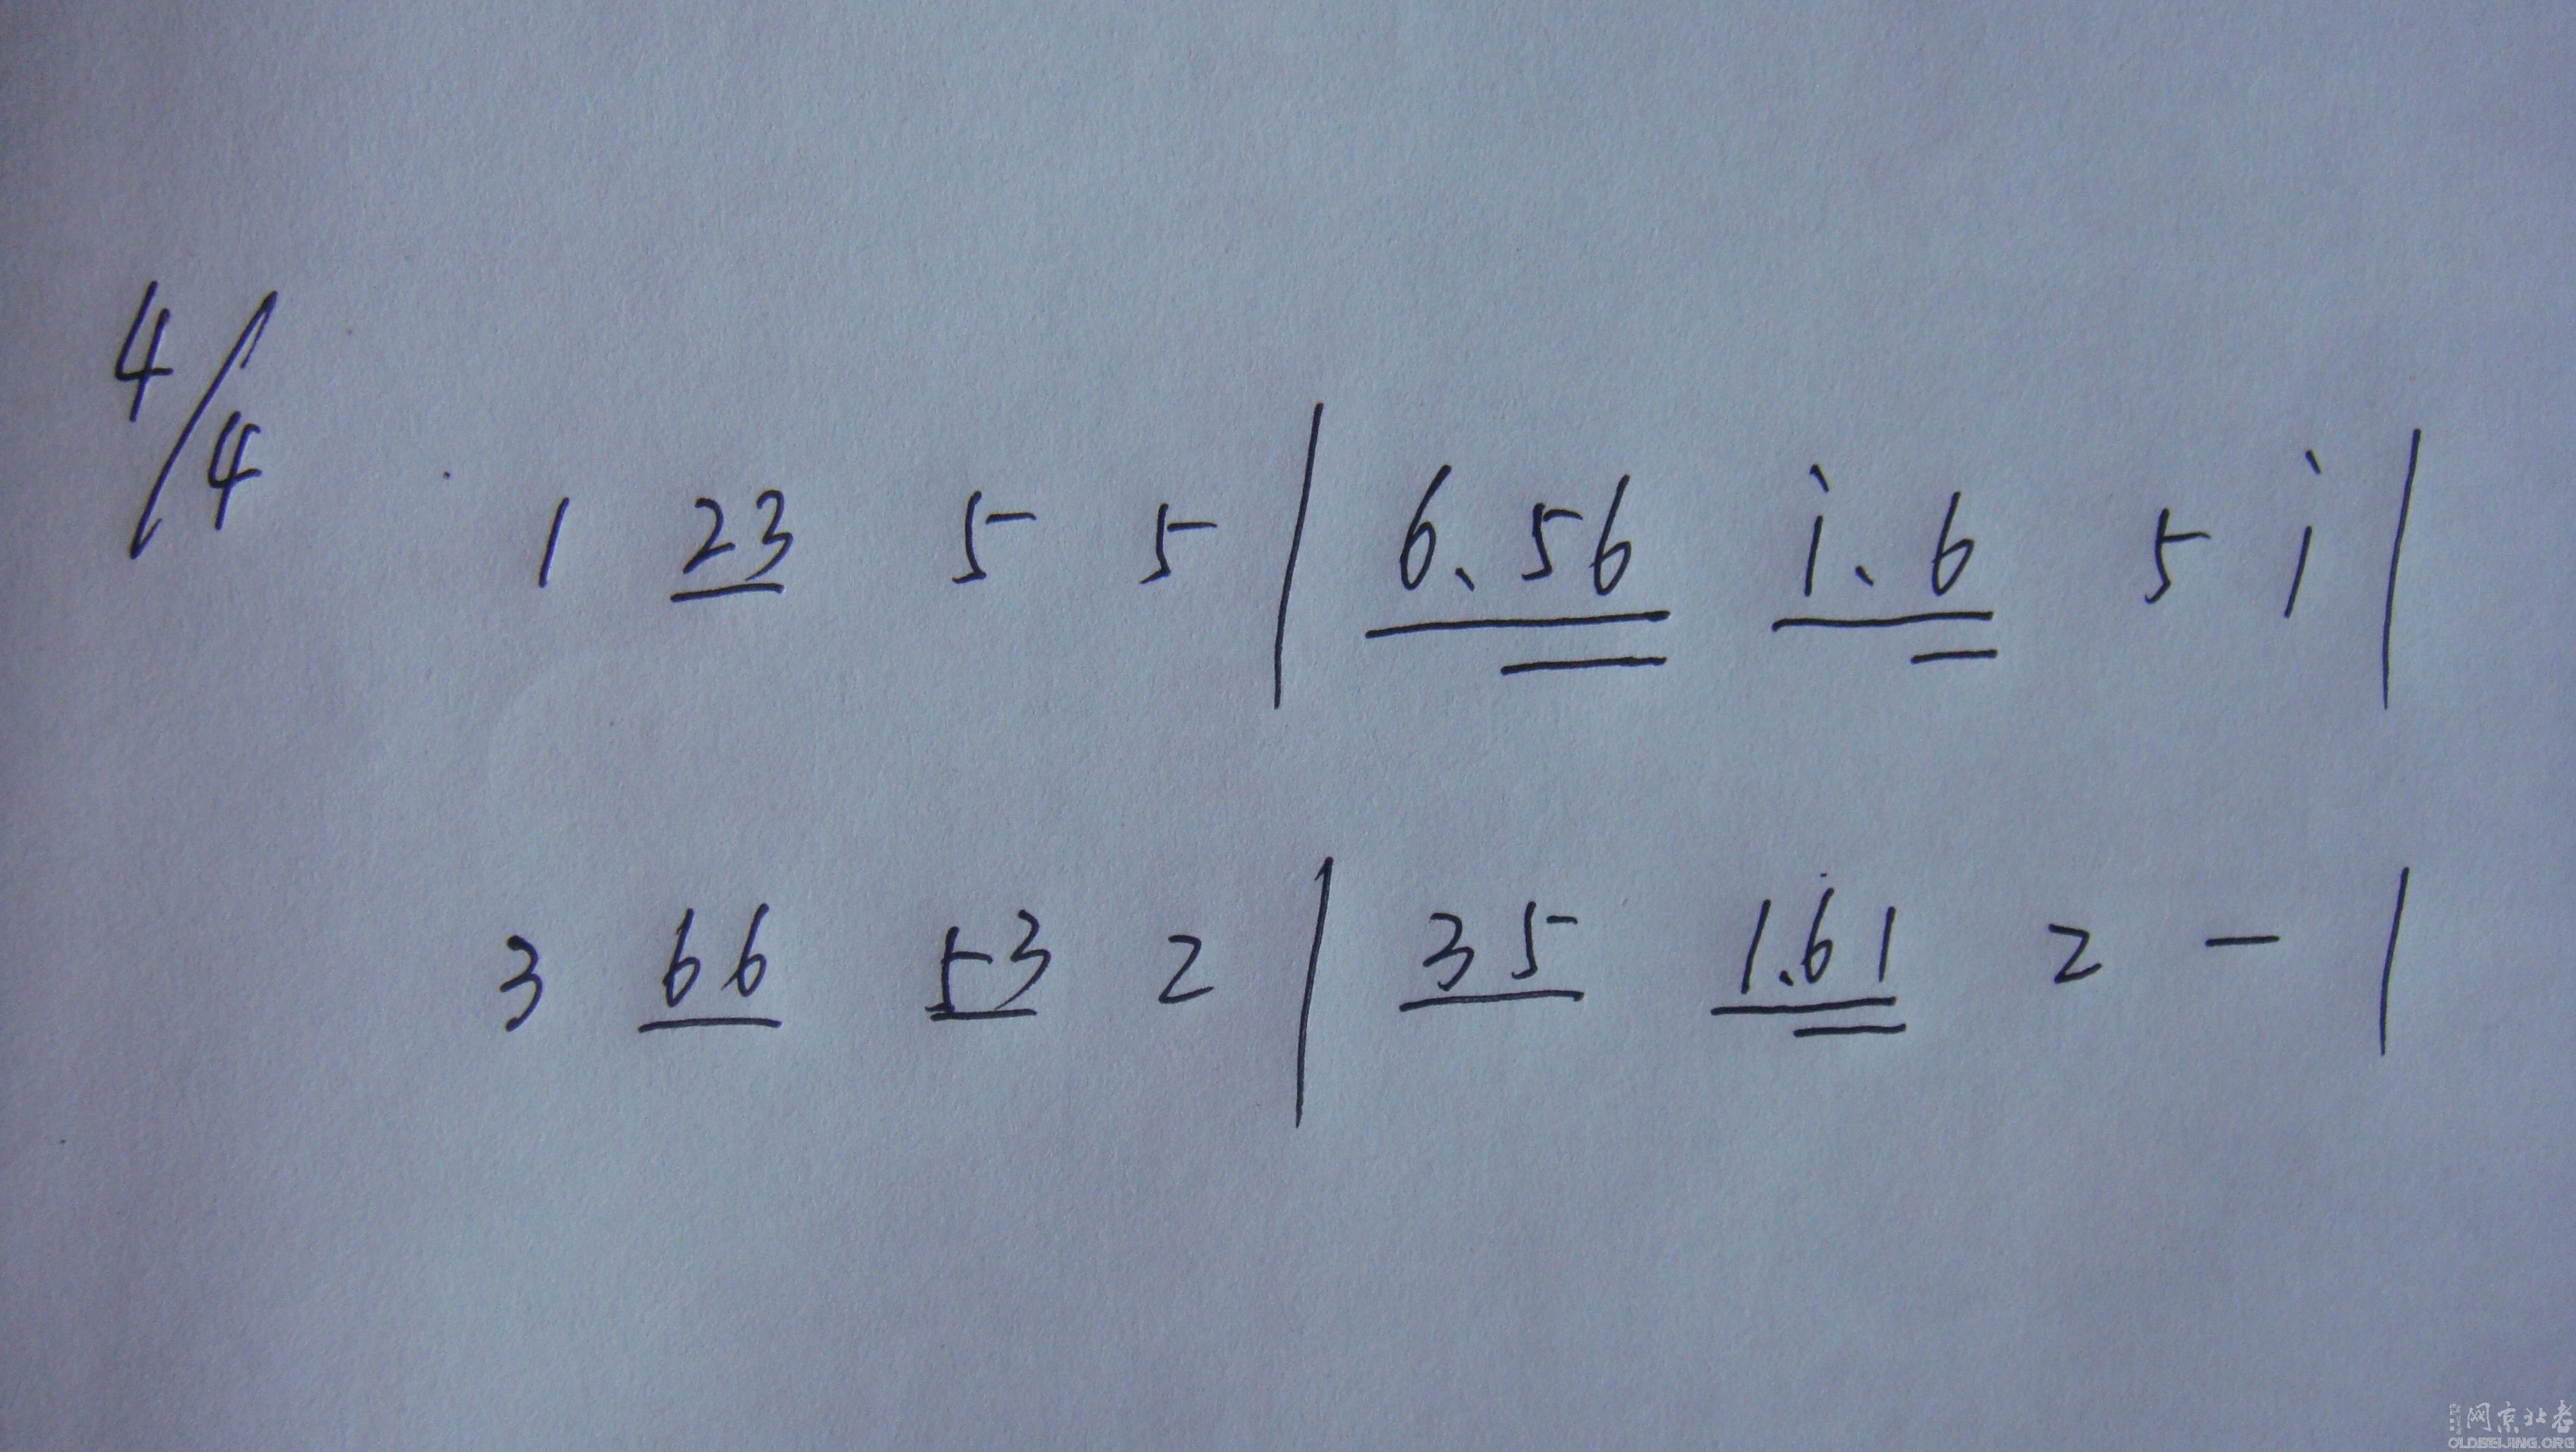 4/4
1 23 5 5 | 6.56 i.6 5 i |
3 66 53 2 | 35 1.61 2 - |
老北京网
OLDBEIJING.ORG